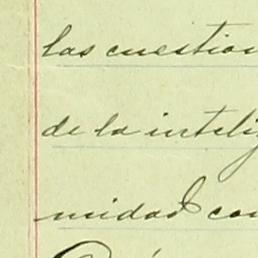 las cuestion
de la intelig
midad con